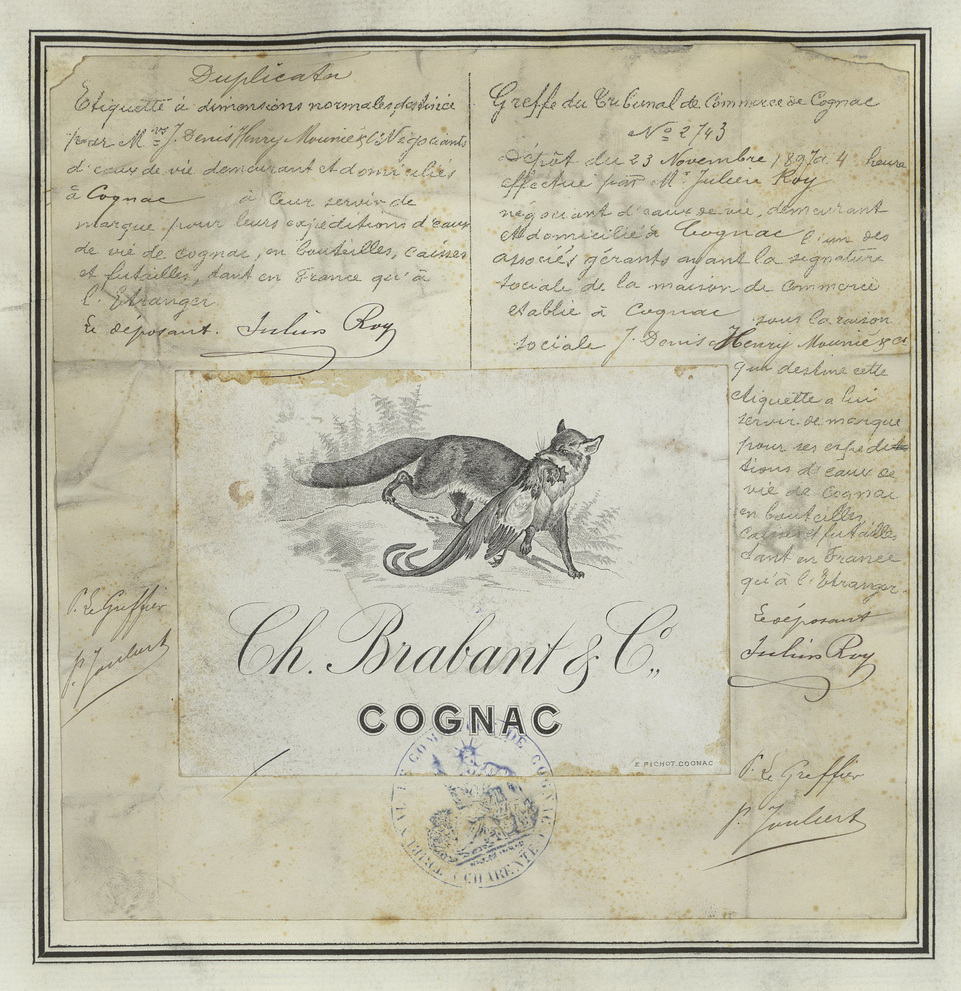 Duplicata
Etiquette à dimensions normales, destinée
pour Mrs J. Denis Henry Mounié & Co Négociants
d'eaux de vie demeurant et domiciliés
à Cognac à leur servir de
marque pour leurs expéditions d'eaux
de vie de cognac, en bouteilles, caisses
et futailles, tant en France qu'à
l'Etranger
Le déposant. Julien Roy
Greffe du Tribunal de Commerce de Cognac
No 2743
Dépôt du 23 Novembre 1897 à 4 heures
effectué par Mr Julien Roy
négociant d'eaux de vie, demeurant
et domicilié à Cognac l'un des
associés gérants ayant la signature
sociale de la maison de commerce
etablie à Cognac sous la raison
sociale J. Denis Henry Mounié & Co
qui destine cette
étiquette à lui
servir de marque
pour ses expédi-
tions d'eaux de
vie de Cognac
en bouteilles,
caisses et futailles
tant en France
qu'à l'Etranger
Le déposant
Julien Roy
P. Le Greffier
P. Joubert
Ch. Brabant & Co.,
COGNAC
E. PICHOT. COGNAC
P. Le Greffier
P. Joubert
TRIBUNAL DE COMMERCE DE COGNAC
CHARENTE